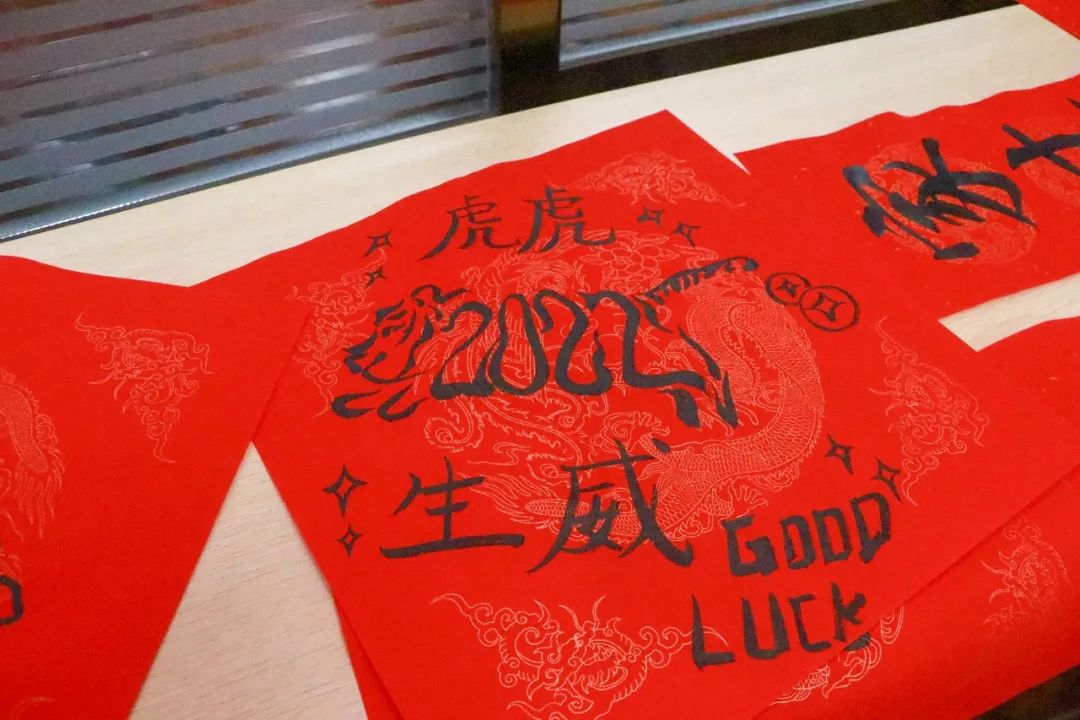 虎虎
2022
生威
GOOD
LUCK